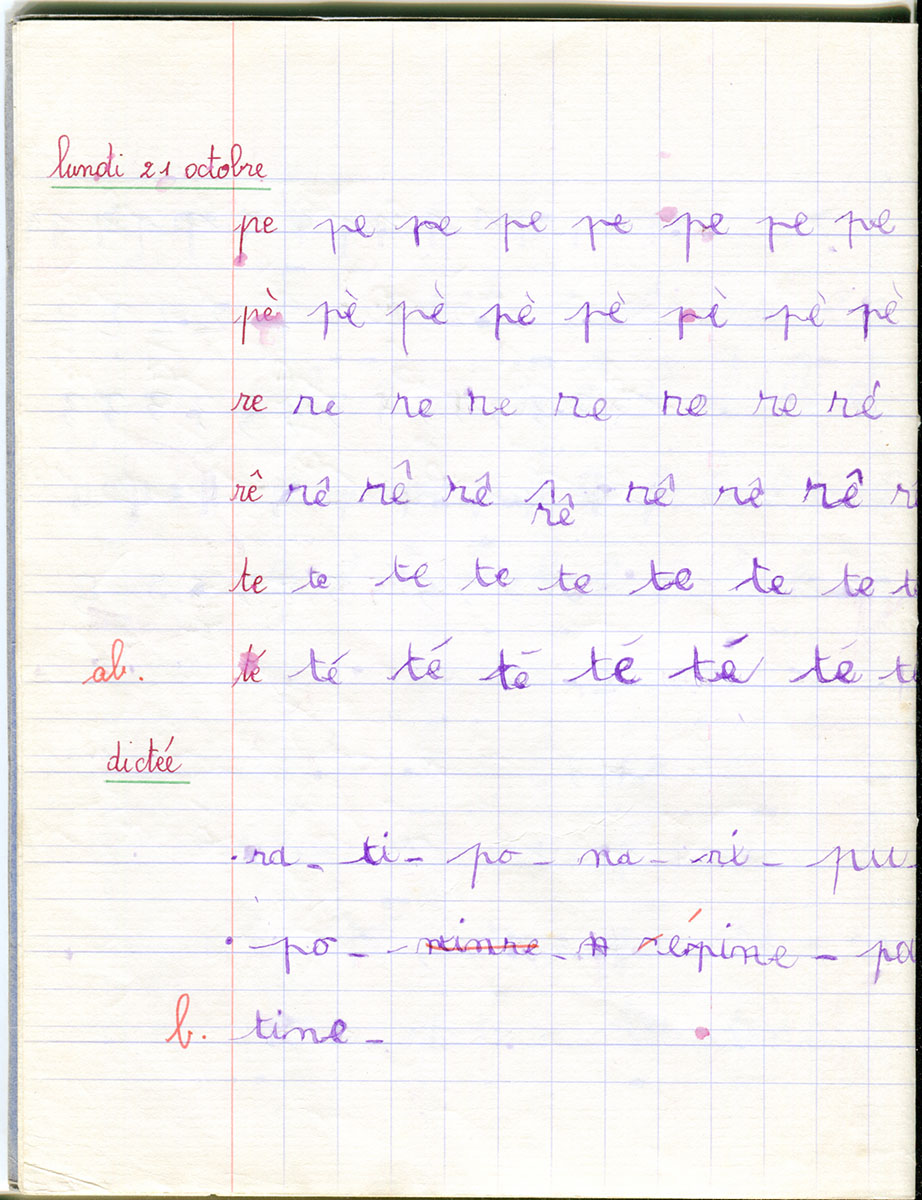 lundi 21 octobre
pe pe pe pe pe pe pe pe
pè pè pè pè pè pè pè pè
re re re re re re re ré
rê rê rê rê rê rê rê rê
te te te te te te te te
ab. té té té té té té té
dictée
ra - ti - po - na - ri - pu -
po - - répine - pa
b. tine -